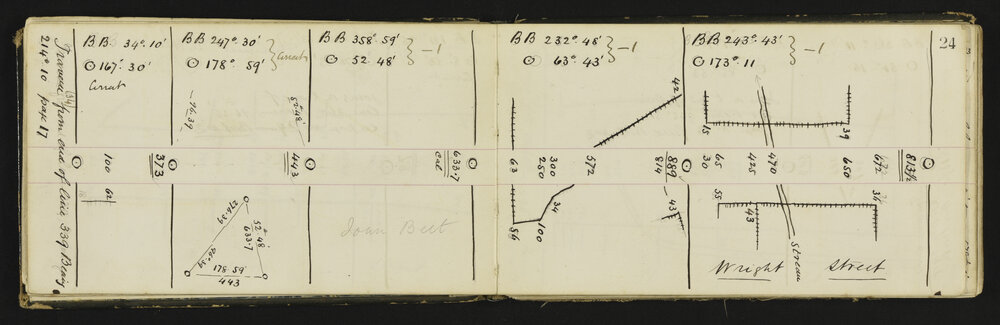 24
Traverse (34) from end of line 339 Bearing
214°.10 page 17
BB 34°.10'
⊙ 167°. 30'
Correct
BB 247°. 30'
⊙ 178°. 59'
Correct
BB 358°. 59'
⊙ 52 48'
-1
BB 232°. 48'
⊙ 63°. 43'
-1
BB 243°. 43'
⊙ 173°. 11
-1
100
373
443
633·7
cal
63
250
300
572
814
889
30
65
425
470
650
672
813½
62
96·39
52°·48'
42
15
39
276·39
52°48'
633·7
96·39
178 59'
443
56
100
34
43
55
43
36
Stream
Wright Street